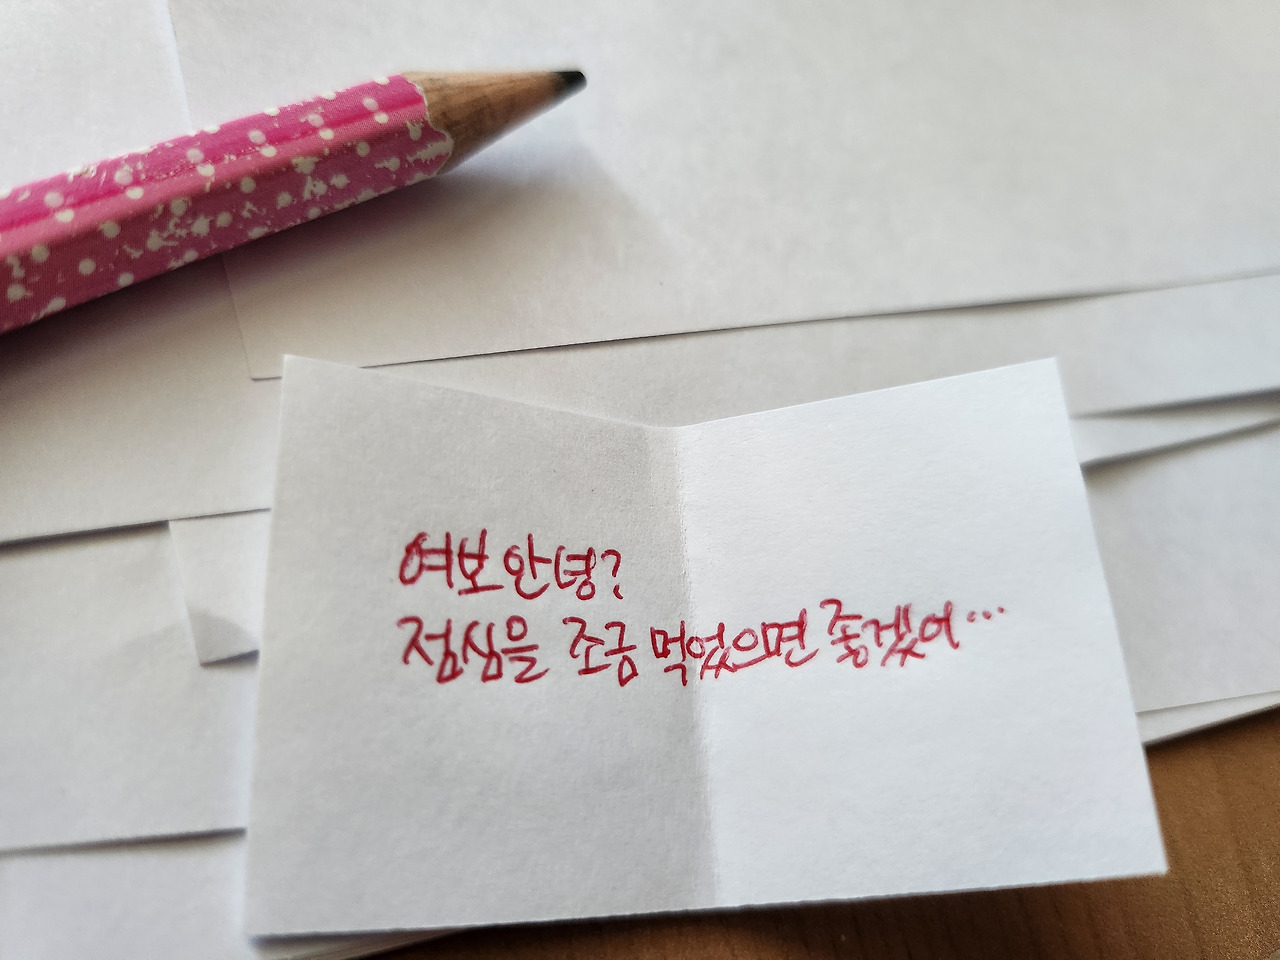 여보 안녕?
점심을 조금 먹었으면 좋겠어...